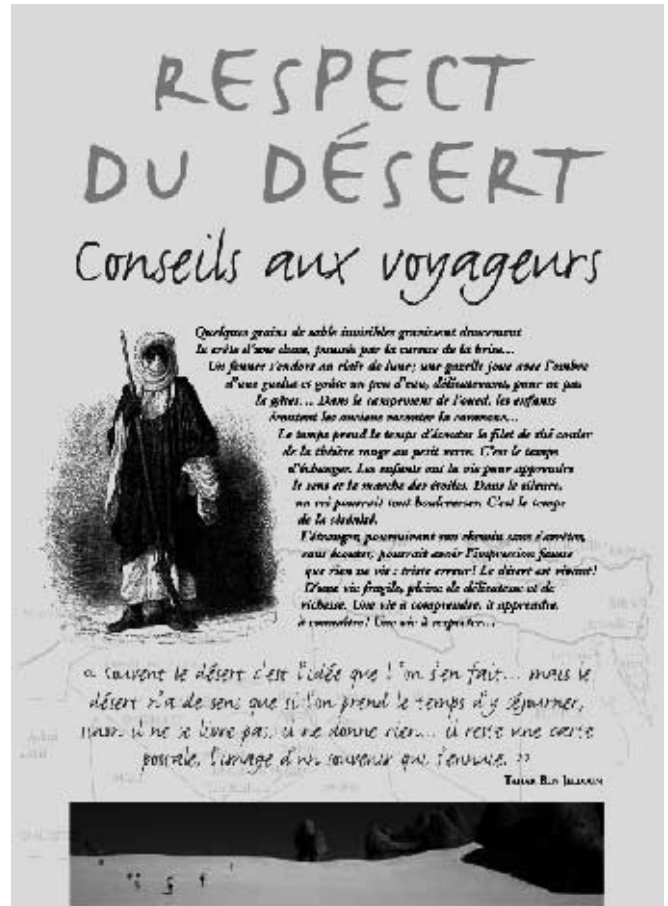 RESPECT
DU DÉSERT
Conseils aux voyageurs
Quelques grains de sable invisibles gravissent doucement
la crête d'une dune, poussés par la caresse de la brise...
Un fennec s'endort au clair de lune; une gazelle joue avec l'ombre
d'une guelta et goûte un peu d'eau, délicatement, pour ne pas
la gâter... Dans le campement de l'oued, les enfants
écoutent les anciens raconter la caravane...
Le temps prend le temps d'écouter le filet de thé couler
de la théière rouge au petit verre. C'est le temps
d'échanger. Les enfants ont la vie pour apprendre
le sens et la marche des étoiles. Dans le silence,
un cri pourrait tout bouleverser. C'est le temps
de la sérénité.
L'étranger, poursuivant son chemin sans s'arrêter,
sans écouter, pourrait avoir l'impression fausse
que rien ne vit : triste erreur! Le désert est vivant!
D'une vie fragile, pleine de délicatesse et de
richesse. Une vie à comprendre, à apprendre,
à connaître! Une vie à respecter...
« Souvent le désert c'est l'idée que l'on s'en fait... mais le
désert n'a de sens que si l'on prend le temps d'y séjourner,
sinon il ne se livre pas, il ne donne rien... il reste une carte
postale, l'image d'un souvenir qui s'ennuie. »
TAHAR BEN JELLOUN